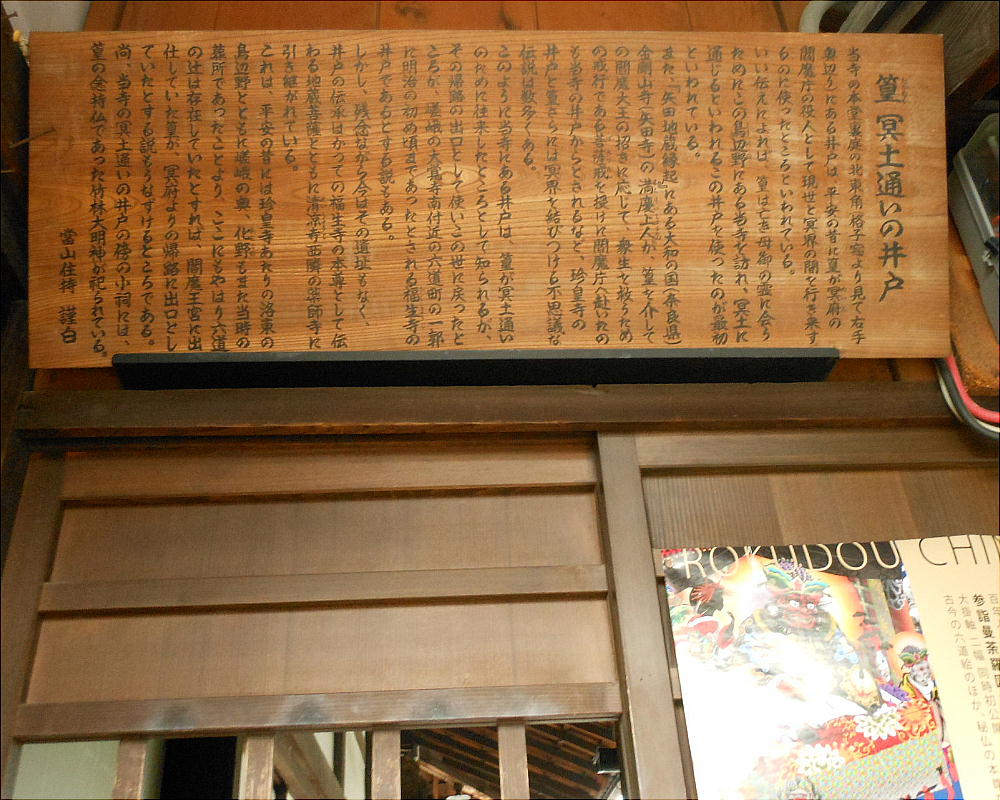 篁冥土通いの井戸
当寺の本堂裏庭の北東角(格子窓より見て右手
奥辺り)にある井戸は、平安の昔に篁が冥府の
閻魔庁の役人として現世と冥界の間を行き来す
るのに使ったところといわれている。
いい伝えによれば、篁は亡き母御の霊に会う
ためにこの鳥辺野にある当寺を訪れ、冥土に
通じるといわれるこの井戸を使ったのが最初
といわれている。
また、『矢田地蔵縁起』にある大和の国(奈良県)
金剛山寺(矢田寺)の満慶上人が、篁を介して
の閻魔大王の招きに応じて、衆生を救うため
の戒行である菩薩戒を授けに閻魔庁へ赴いたの
も当寺の井戸からとされるなど、珍皇寺の
井戸と篁さらには冥界を結びつける不思議な
伝説は数多くある。
このように当寺にある井戸は、篁が冥土通い
のために往来したところとして知られるが、
その帰路の出口として使いこの世に戻ったと
ころが、嵯峨の大覚寺南付近の六道町の一郭
に明治の初め頃まであったとされる福生寺の
井戸であるとする説もある。
しかし、残念ながら今はその遺址もなく、
井戸の伝承はかつての福生寺の本尊として伝
わる地蔵菩薩とともに清凉寺西隣の薬師寺に
引き継がれている。
これは、平安の昔には珍皇寺あたりの洛東の
鳥辺野とともに嵯峨の奥、化野もまた当時の
葬所であったことより、ここにもやはり六道
の辻は存在していたとすれば、閻魔王宮に出
仕していた篁が、冥府よりの帰路に出口とし
ていたとする説もうなずけるところである。
尚、当寺の冥土通いの井戸の傍の小祠には、
篁の念持仏であった竹林大明神が祀られている。
當山住持 謹白
ROKUDOU CHIN
参詣曼荼羅
大掛軸二幅同時初公開
古今の六道絵のほか、秘仏の本